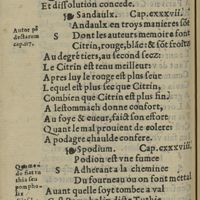 Et dissolution concede.
Sandaulx. Cap.cxxxvii.
Andaulx en troys manieres sõt
S Dont les auteurs memoire font
Citrin, rouge, blãc: & sõt frois
Au degré tiers, au second secz:
Le Citrin est tenu meilleur:
Apres luy le rouge est plus seur
Lequel est plus sec que Citrin,
Combien que Citrin est plus fin:
A lestomach donne confort,
Au foye & cueur, faict son effort
Quant le mal prouient de colere:
A podagre chaulde confere.
Spodium. Cap.cxxxviii.
Podion est vne fumee
S Adherante a la cheminee
Du fourneau ou on font metal
Auant quelle soyt tombe a val